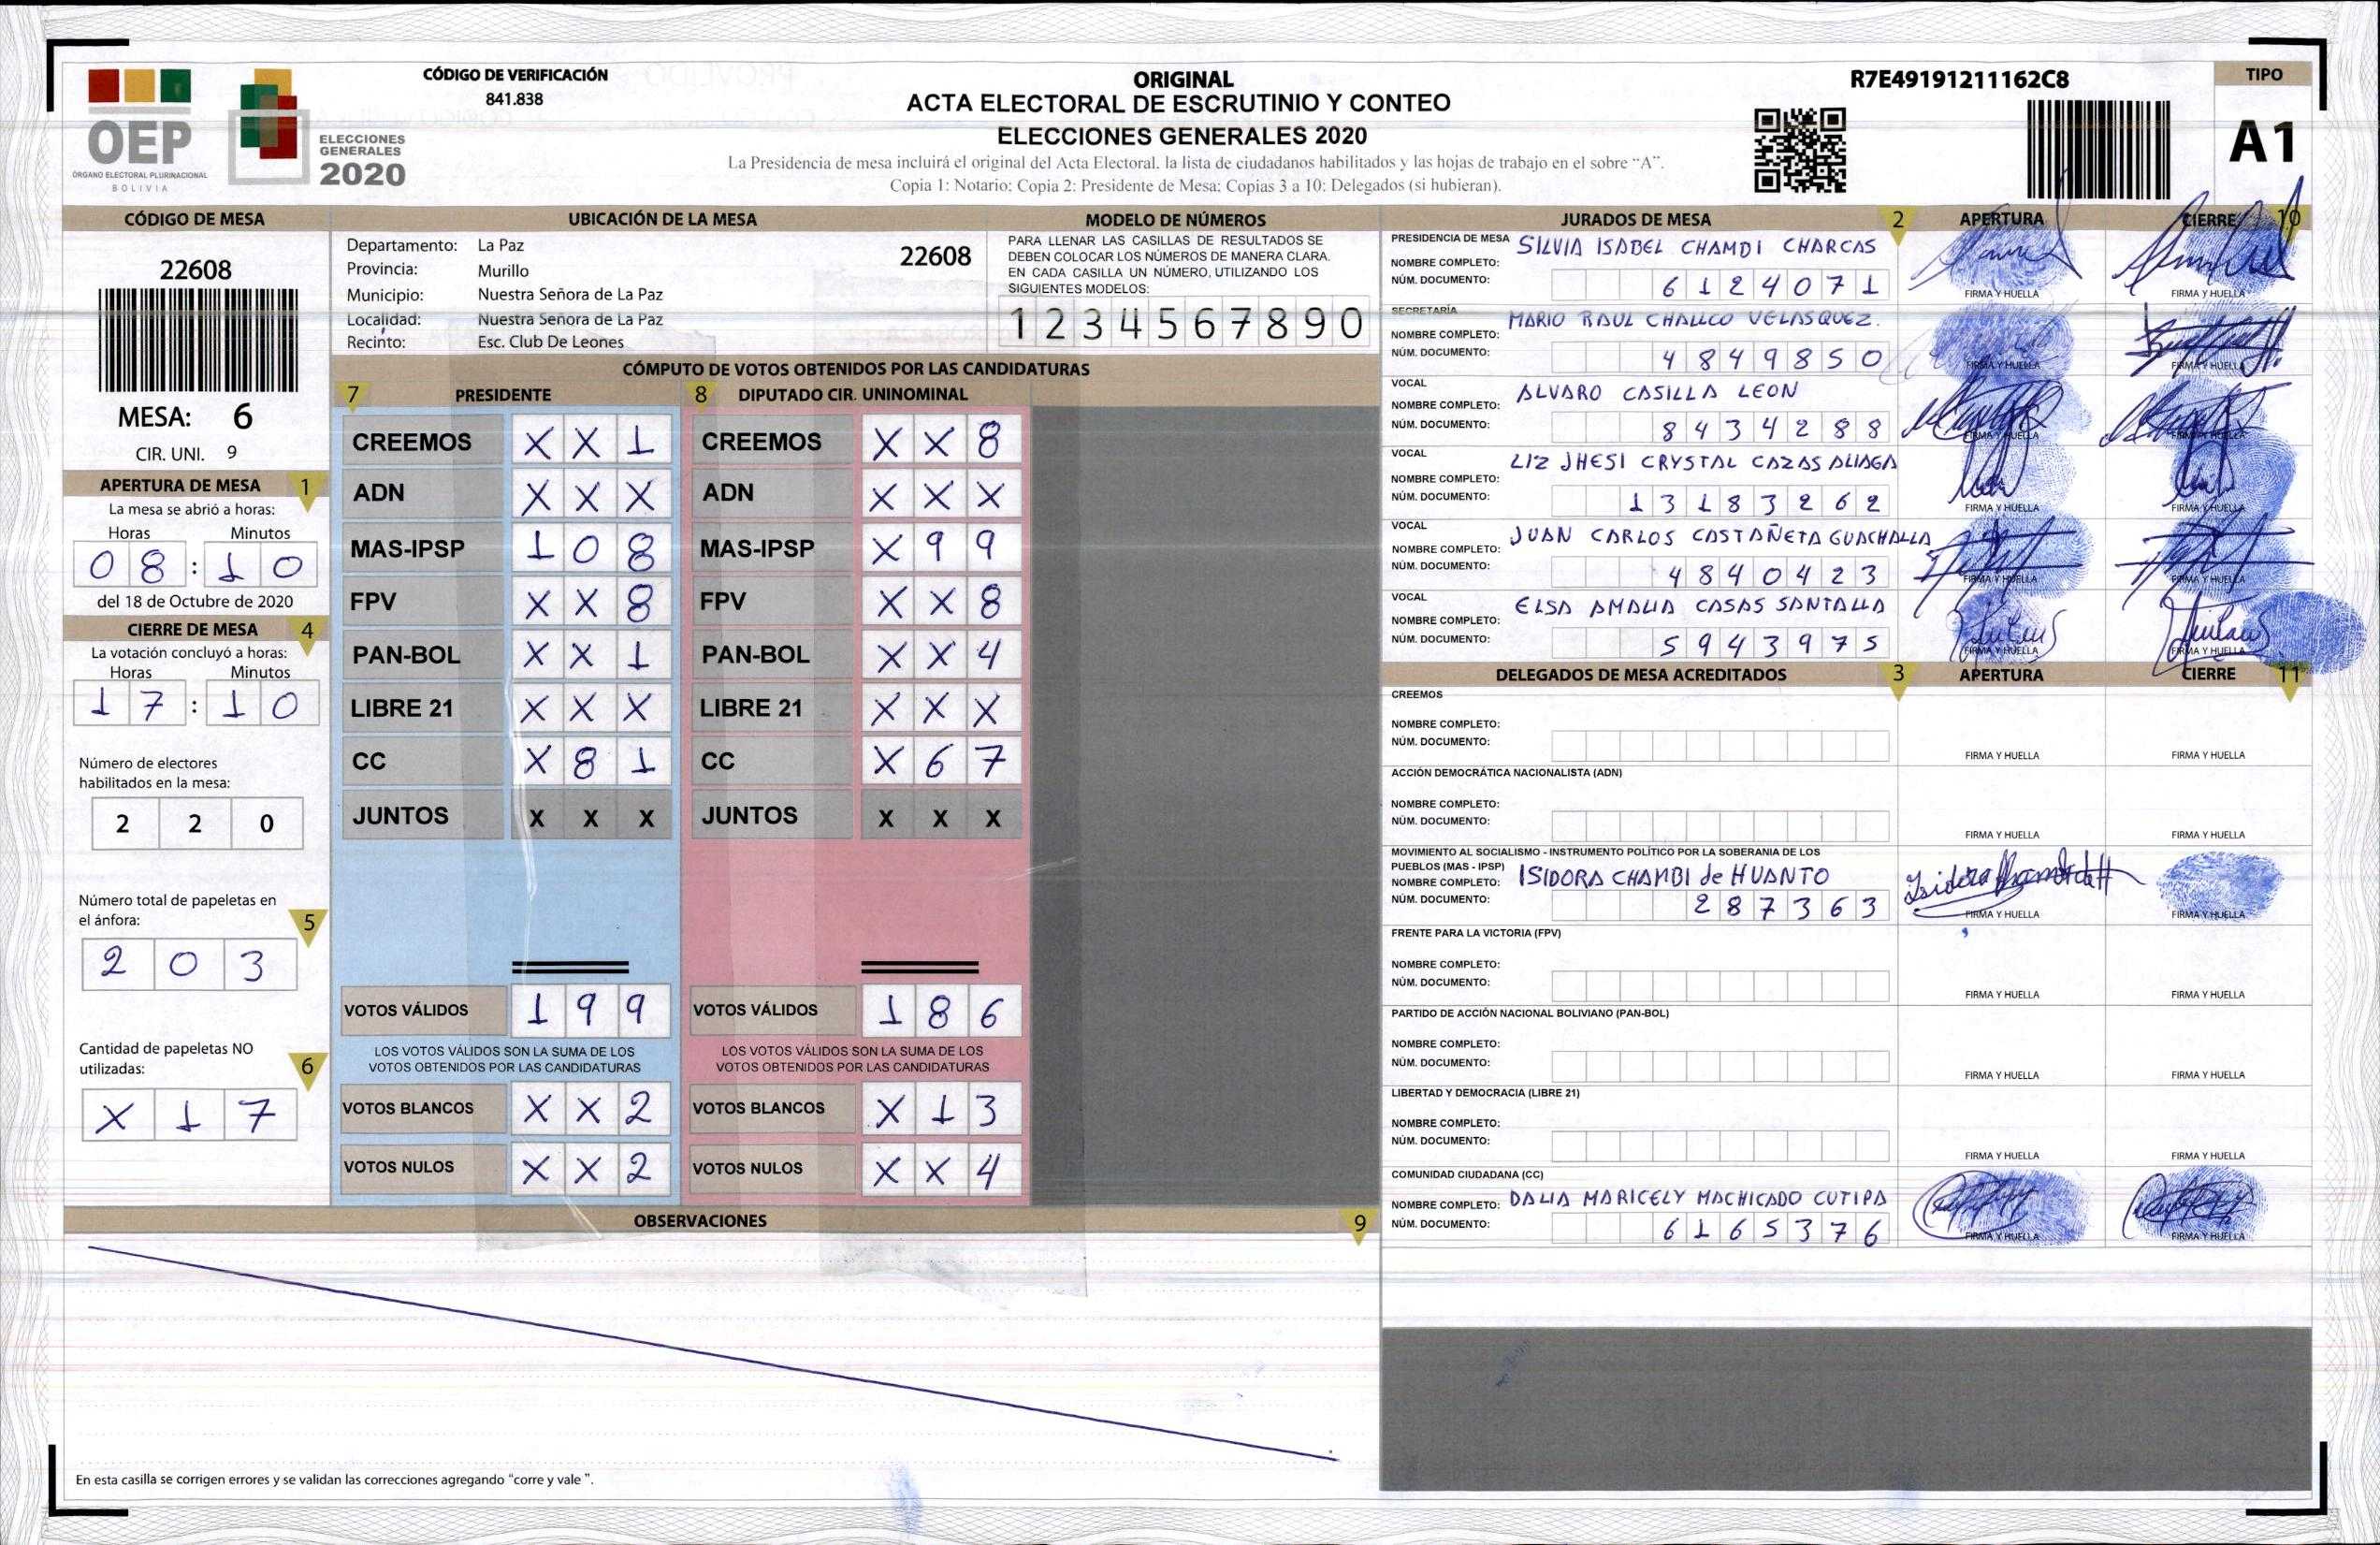 CÓDIGO DE VERIFICACIÓN
841.838
OEP
ÓRGANO ELECTORAL PLURINACIONAL
BOLIVIA
ELECCIONES
GENERALES
2020
ORIGINAL
ACTA ELECTORAL DE ESCRUTINIO Y CONTEO
ELECCIONES GENERALES 2020
La Presidencia de mesa incluirá el original del Acta Electoral. la lista de ciudadanos habilitados y las hojas de trabajo en el sobre “A”.
Copia 1: Notario: Copia 2: Presidente de Mesa: Copias 3 a 10: Delegados (si hubieran).
R7E49191211162C8
TIPO
A1
CÓDIGO DE MESA
22608
MESA: 6
CIR. UNI. 9
APERTURA DE MESA 1
La mesa se abrió a horas:
Horas Minutos
08 : 10
del 18 de Octubre de 2020
CIERRE DE MESA 4
La votación concluyó a horas:
Horas Minutos
17 : 10
Número de electores
habilitados en la mesa:
2 2 0
Número total de papeletas en
el ánfora: 5
2 0 3
Cantidad de papeletas NO
utilizadas: 6
X 1 7
UBICACIÓN DE LA MESA
Departamento: La Paz 22608
Provincia: Murillo
Municipio: Nuestra Señora de La Paz
Localidad: Nuestra Senora de La Paz
Recinto: Esc. Club De Leones
MODELO DE NÚMEROS
PARA LLENAR LAS CASILLAS DE RESULTADOS SE
DEBEN COLOCAR LOS NÚMEROS DE MANERA CLARA.
EN CADA CASILLA UN NÚMERO, UTILIZANDO LOS
SIGUIENTES MODELOS:
1 2 3 4 5 6 7 8 9 0
CÓMPUTO DE VOTOS OBTENIDOS POR LAS CANDIDATURAS
7 PRESIDENTE 8 DIPUTADO CIR. UNINOMINAL
CREEMOS X X 1 CREEMOS X X 8
ADN X X X ADN X X X
MAS-IPSP 1 0 8 MAS-IPSP X 9 9
FPV X X 8 FPV X X 8
PAN-BOL X X 1 PAN-BOL X X 4
LIBRE 21 X X X LIBRE 21 X X X
CC X 8 1 CC X 6 7
JUNTOS X X X JUNTOS X X X
VOTOS VÁLIDOS 1 9 9 VOTOS VÁLIDOS 1 8 6
LOS VOTOS VÁLIDOS SON LA SUMA DE LOS LOS VOTOS VÁLIDOS SON LA SUMA DE LOS
VOTOS OBTENIDOS POR LAS CANDIDATURAS VOTOS OBTENIDOS POR LAS CANDIDATURAS
VOTOS BLANCOS X X 2 VOTOS BLANCOS X 1 3
VOTOS NULOS X X 2 VOTOS NULOS X X 4
OBSERVACIONES 9
En esta casilla se corrigen errores y se validan las correcciones agregando “corre y vale ”.
JURADOS DE MESA 2 APERTURA CIERRE 10
PRESIDENCIA DE MESA SILVIA ISABEL CHAMDI CHARCAS
NOMBRE COMPLETO:
NÚM. DOCUMENTO: 6124071
FIRMA Y HUELLA FIRMA Y HUELLA
SECRETARÍA MARIO RAUL CHALLCO VELASQUEZ.
NOMBRE COMPLETO:
NÚM. DOCUMENTO: 4849850
FIRMA Y HUELLA FIRMA Y HUELLA
VOCAL ALVARO CASILLA LEON
NOMBRE COMPLETO:
NÚM. DOCUMENTO: 8434288
FIRMA Y HUELLA FIRMA Y HUELLA
VOCAL LIZ JHESI CRYSTAL CAZAS ALIAGA
NOMBRE COMPLETO:
NÚM. DOCUMENTO: 13183262
FIRMA Y HUELLA FIRMA Y HUELLA
VOCAL JUAN CARLOS CASTAÑETA GUACHALLA
NOMBRE COMPLETO:
NÚM. DOCUMENTO: 4840423
FIRMA Y HUELLA FIRMA Y HUELLA
VOCAL ELSA AMALIA CASAS SANTALLA
NOMBRE COMPLETO:
NÚM. DOCUMENTO: 5943975
FIRMA Y HUELLA FIRMA Y HUELLA
DELEGADOS DE MESA ACREDITADOS 3 APERTURA CIERRE 11
CREEMOS
NOMBRE COMPLETO:
NÚM. DOCUMENTO:
FIRMA Y HUELLA FIRMA Y HUELLA
ACCIÓN DEMOCRÁTICA NACIONALISTA (ADN)
NOMBRE COMPLETO:
NÚM. DOCUMENTO:
FIRMA Y HUELLA FIRMA Y HUELLA
MOVIMIENTO AL SOCIALISMO - INSTRUMENTO POLÍTICO POR LA SOBERANIA DE LOS
PUEBLOS (MAS - IPSP)
NOMBRE COMPLETO: ISIDORA CHAMBI de HUANTO
NÚM. DOCUMENTO: 287363
FIRMA Y HUELLA FIRMA Y HUELLA
FRENTE PARA LA VICTORIA (FPV)
NOMBRE COMPLETO:
NÚM. DOCUMENTO:
FIRMA Y HUELLA FIRMA Y HUELLA
PARTIDO DE ACCIÓN NACIONAL BOLIVIANO (PAN-BOL)
NOMBRE COMPLETO:
NÚM. DOCUMENTO:
FIRMA Y HUELLA FIRMA Y HUELLA
LIBERTAD Y DEMOCRACIA (LIBRE 21)
NOMBRE COMPLETO:
NÚM. DOCUMENTO:
FIRMA Y HUELLA FIRMA Y HUELLA
COMUNIDAD CIUDADANA (CC)
NOMBRE COMPLETO: DALIA MARICELY MACHICADO CUTIPA
NÚM. DOCUMENTO: 6165376
FIRMA Y HUELLA FIRMA Y HUELLA